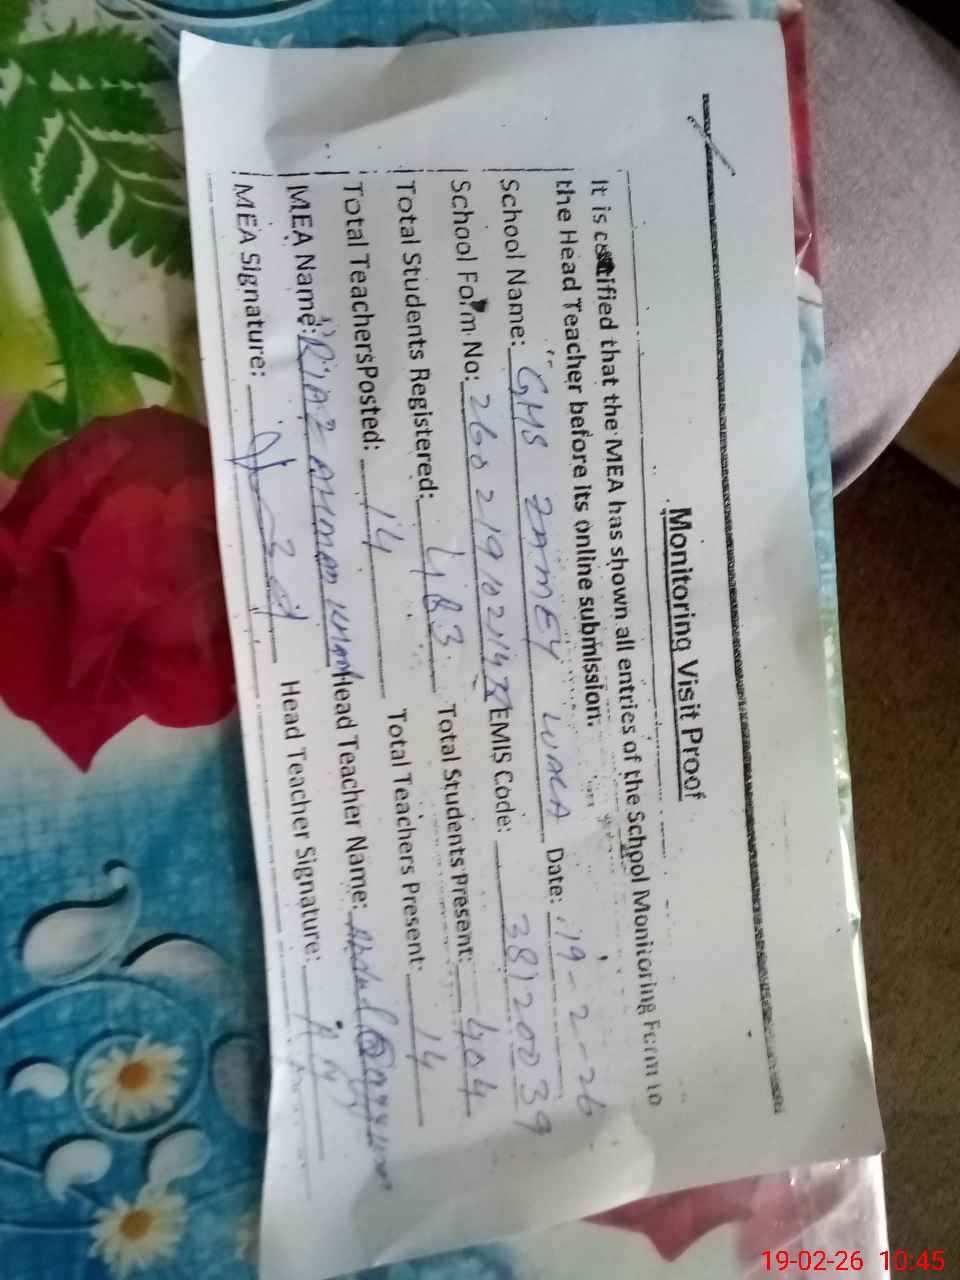 Monitoring Visit Proof
It is certified that the MEA has shown all entries of the School Monitoring Form to
the Head Teacher before its online submission.
School Name: GHS ZAMEY WALA Date: 19-2-26
School Form No: EMIS Code: 38120039
Total Students Registered: 483 Total Students Present: 404
Total Teachers Posted: 14 Total Teachers Present: 14
MEA Name: RIAZ AHMAD KHAN Head Teacher Name: Abdul
MEA Signature: Head Teacher Signature:
19-02-26 10:45